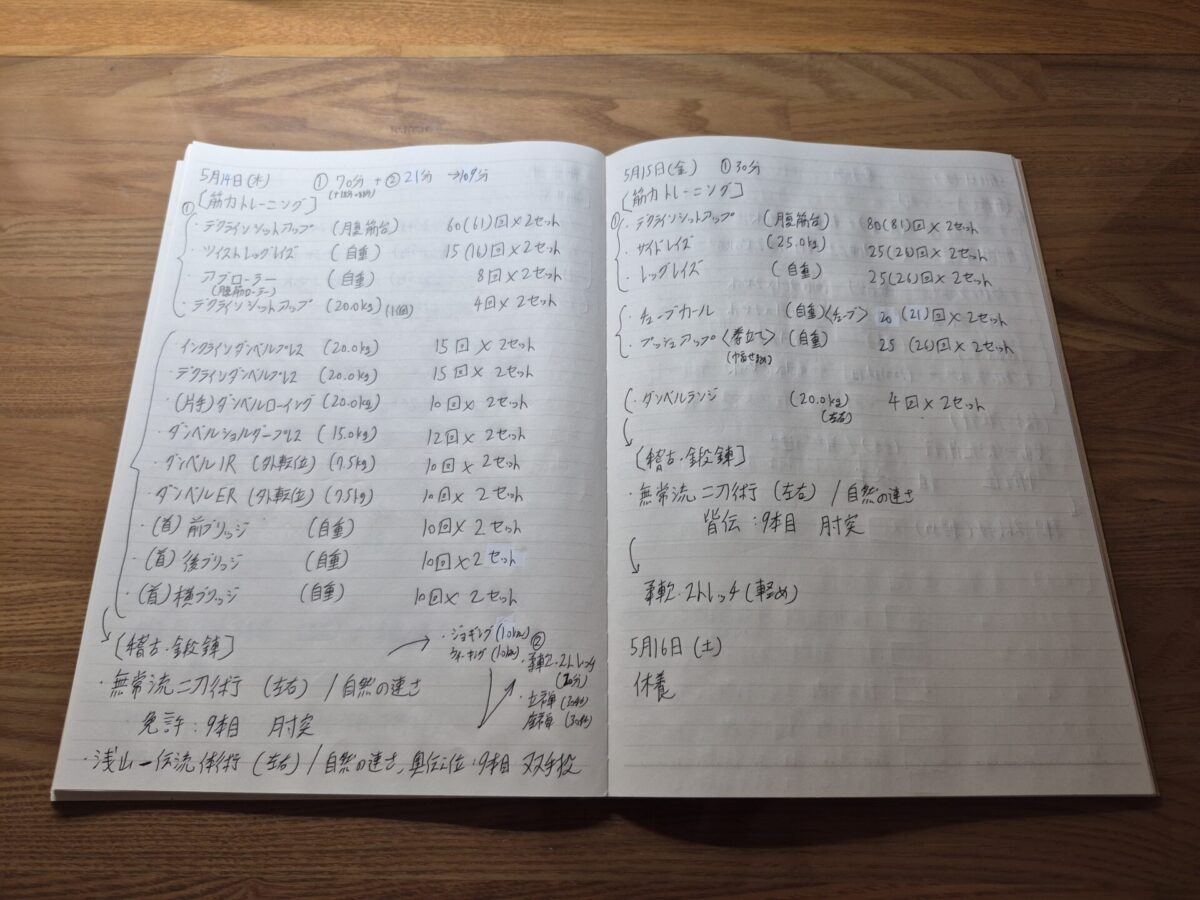 5月14日(木) ① 70分 + ② 21分 →109分
[筋力トレーニング]
①
・デクラインシットアップ (腹筋台) 60(61)回×2セット
・ツイストレッグレイズ (自重) 15(16)回×2セット
・アブローラー (自重) 8回×2セット
(腹筋ローラー)
・デクラインシットアップ (20.0kg)(1個) 4回×2セット
・インクラインダンベルプレス (20.0kg) 15回×2セット
・デクラインダンベルプレス (20.0kg) 15回×2セット
・(片手)ダンベルローイング (20.0kg) 10回×2セット
・ダンベルショルダープレス (15.0kg) 12回×2セット
・ダンベルIR (外転位) (7.5kg) 10回×2セット
・ダンベルER (外転位) (7.5kg) 10回×2セット
・(首)前ブリッジ (自重) 10回×2セット
・(首)後ブリッジ (自重) 10回×2セット
・(首)横ブリッジ (自重) 10回×2セット
[稽古・鍛錬]
・無常流二刀術 (左右) / 自然の速さ
免許:9本目 肘突
・浅山一伝流体術 (左右) / 自然の速さ、奥伝之位:9本目
・ジョギング (1.0km)
ウォーキング (1.0km)
②
・柔軟・ストレッチ
・立禅
座禅
5月15日(金) ①30分
[筋力トレーニング]
①
・デクラインシットアップ (腹筋台) 80(81)回×2セット
・サイドレイズ (25.0kg) 25(26)回×2セット
・レッグレイズ (自重) 25(26)回×2セット
・チューブカール (自重)〈チューブ〉 20(21)回×2セット
・プッシュアップ〈拳立て〉 (自重) 25(26)回×2セット
(巾狭め)
・ダンベルランジ (20.0kg) 4回×2セット
(左右)
[稽古・鍛錬]
・無常流二刀術 (左右) / 自然の速さ
皆伝:9本目 肘突
柔軟・ストレッチ (軽め)
5月16日(土)
休養